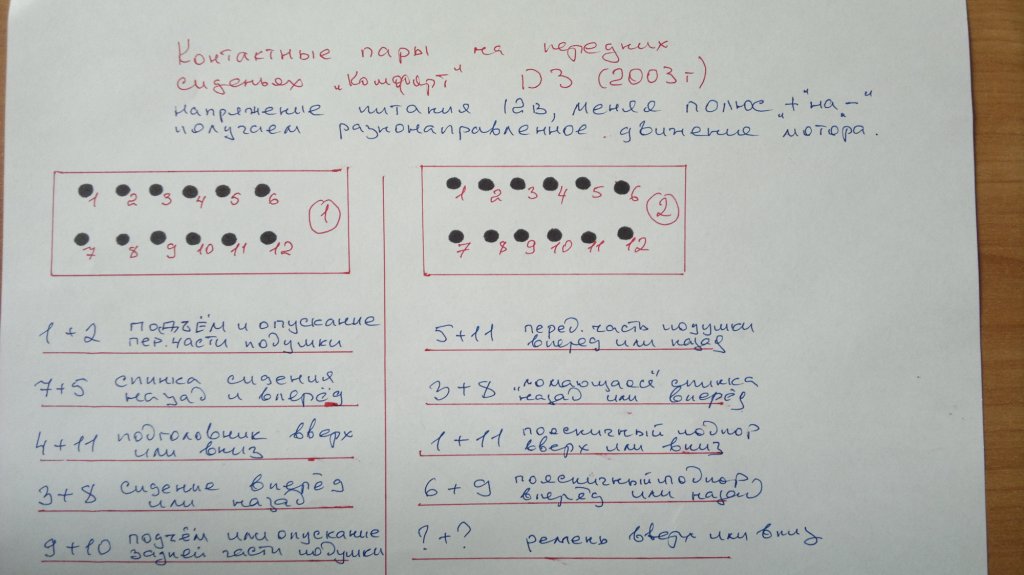 Контактные пары на передних
сиденьях „Комфорт" D3 (2003г)
напряжение питания 12в, меняя полюс „+" на „-"
получаем разнонаправленное движение мотора.
1 2 3 4 5 6
7 8 9 10 11 12
1
1 2 3 4 5 6
7 8 9 10 11 12
2
1+2 подъём и опускание
пер. части подушки
7+5 спинка сидения
назад и вперёд
4+11 подголовник вверх
или вниз
3+8 сидение вперёд
или назад
9+10 подъём или опускание
задней части подушки
5+11 перед. часть подушки
вперёд или назад
3+8 „ломающаеся" спинка
назад или вперёд
1+11 поясничный подпор
вверх или вниз
6+9 поясничный подпор
вперёд или назад
?+? ремень вверх или вниз